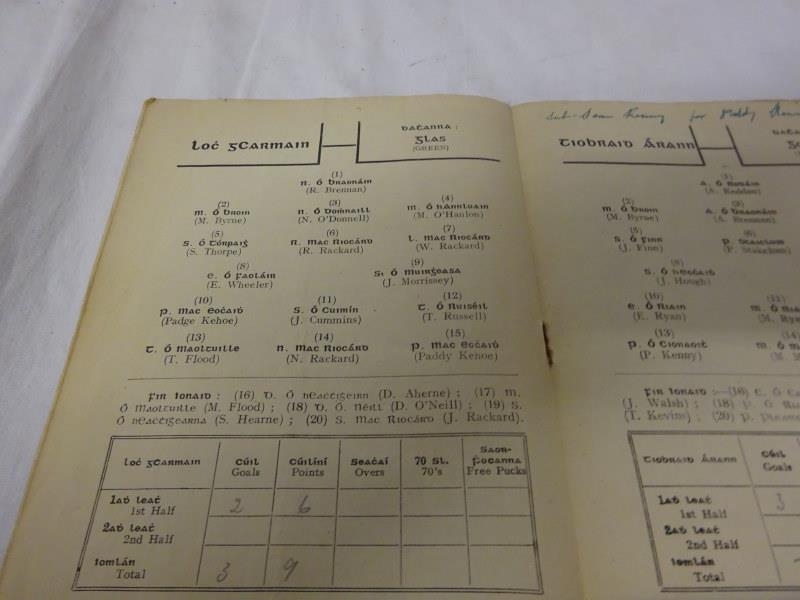 Loċ gCarmain
Daṫanna :
Glas
(GREEN)
(1)
R. Ó Braonáin
(R. Brennan)
(2) (3) (4)
M. Ó Broin R. Ó Doṁnaill M. Ó hAnnluain
(M. Byrne) (N. O'Donnell) (M. O'Hanlon)
(5) (6) (7)
S. Ó Tórpaig R. Mac Riocárd L. Mac Riocárd
(S. Thorpe) (R. Rackard) (W. Rackard)
(8) (9)
E. Ó Faoláin S. Ó Muirġeasa
(E. Wheeler) (J. Morrissey)
(10) (11) (12)
P. Mac Eoċaiḋ S. Ó Cuimín T. Ó Ruiséil
(Padge Kehoe) (J. Cummins) (T. Russell)
(13) (14) (15)
T. Ó Maoltuille N. Mac Riocárd P. Mac Eoċaiḋ
(T. Flood) (N. Rackard) (Paddy Kehoe)
Fir Ionaid : (16) D. Ó hEaċtiġeirn (D. Aherne) ; (17) M.
Ó Maoltuille (M. Flood) ; (18) D. Ó. Néill (D. O'Neill) ; (19) S.
Ó hEaċtiġearna (S. Hearne) ; (20) S. Mac Riocárd (J. Rackard).
Loċ gCarmain Cúil Cúilíní Seaċaí 70 Sl. Saor-
Goals Points Overs 70's Free Pucks
1aḋ Leaṫ
1st Half 2 6
2aḋ Leaṫ
2nd Half
Iomlán
Total 3 9
Sub - Sean Kenny for Paddy
Tiobraid Árann
(1)
(A. Reddan)
(2)
M. Ó Broin A. Ó Braonáin
(M. Byrne) (A. Brennan)
(5) (6)
S. Ó Finn P. Stanclum
(J. Finn) (P. Stakelum)
(8)
(J. Hough)
(10) (11)
E. Ó Riain
(E. Ryan) (M. Ry
(13) (14)
P. Ó Cionaoiṫ
(P. Kenny) (M. M
Fir Ionaid :— (16)
(J. Walsh) ; (18)
(T. Kevins) ; (20)
Tiobraid Árann Cúil
Goals
1aḋ Leaṫ
1st Half 3
2aḋ Leaṫ
2nd Half
Iomlán
Total